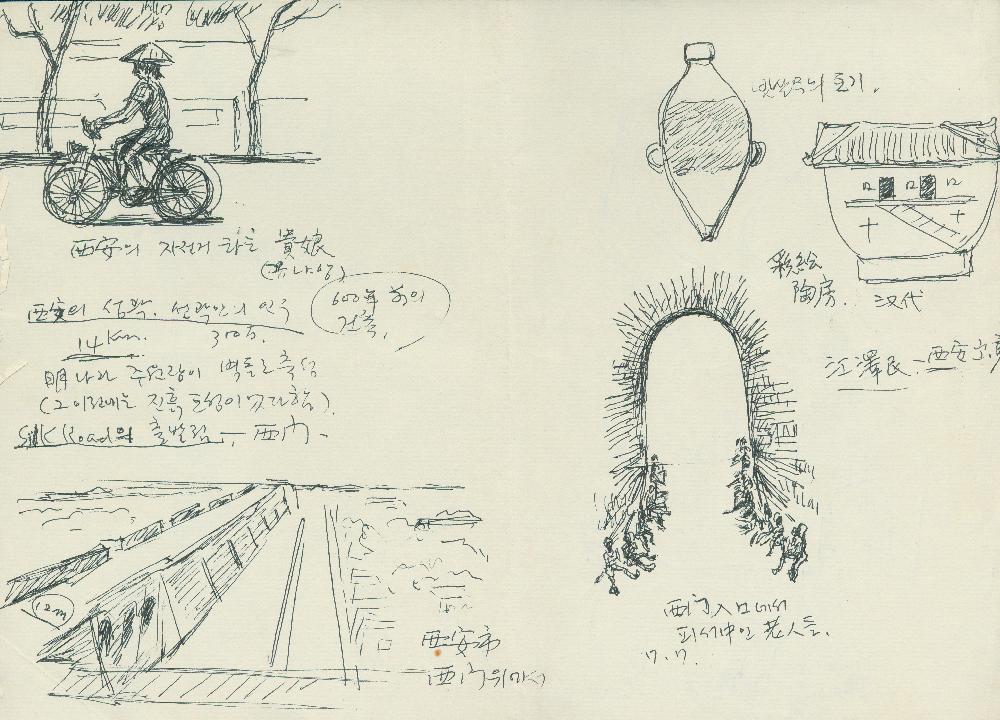 西安의 자전거 타는 貴娘
西安의 성곽. 성곽안의 인구
14 Km. 310万.
600年 前의
건축.
明나라 주원장이 벽돌로 축성
(그 이전에는 진흙 토성이었다함).
SilK Road의 출발점 — 西門 -
12m
西安市
西門위에서
옛날의 토기.
彩绘
陶房.
汉代
江澤民 - 西安
西門入口에서
피서中인 老人들.
7. 7.